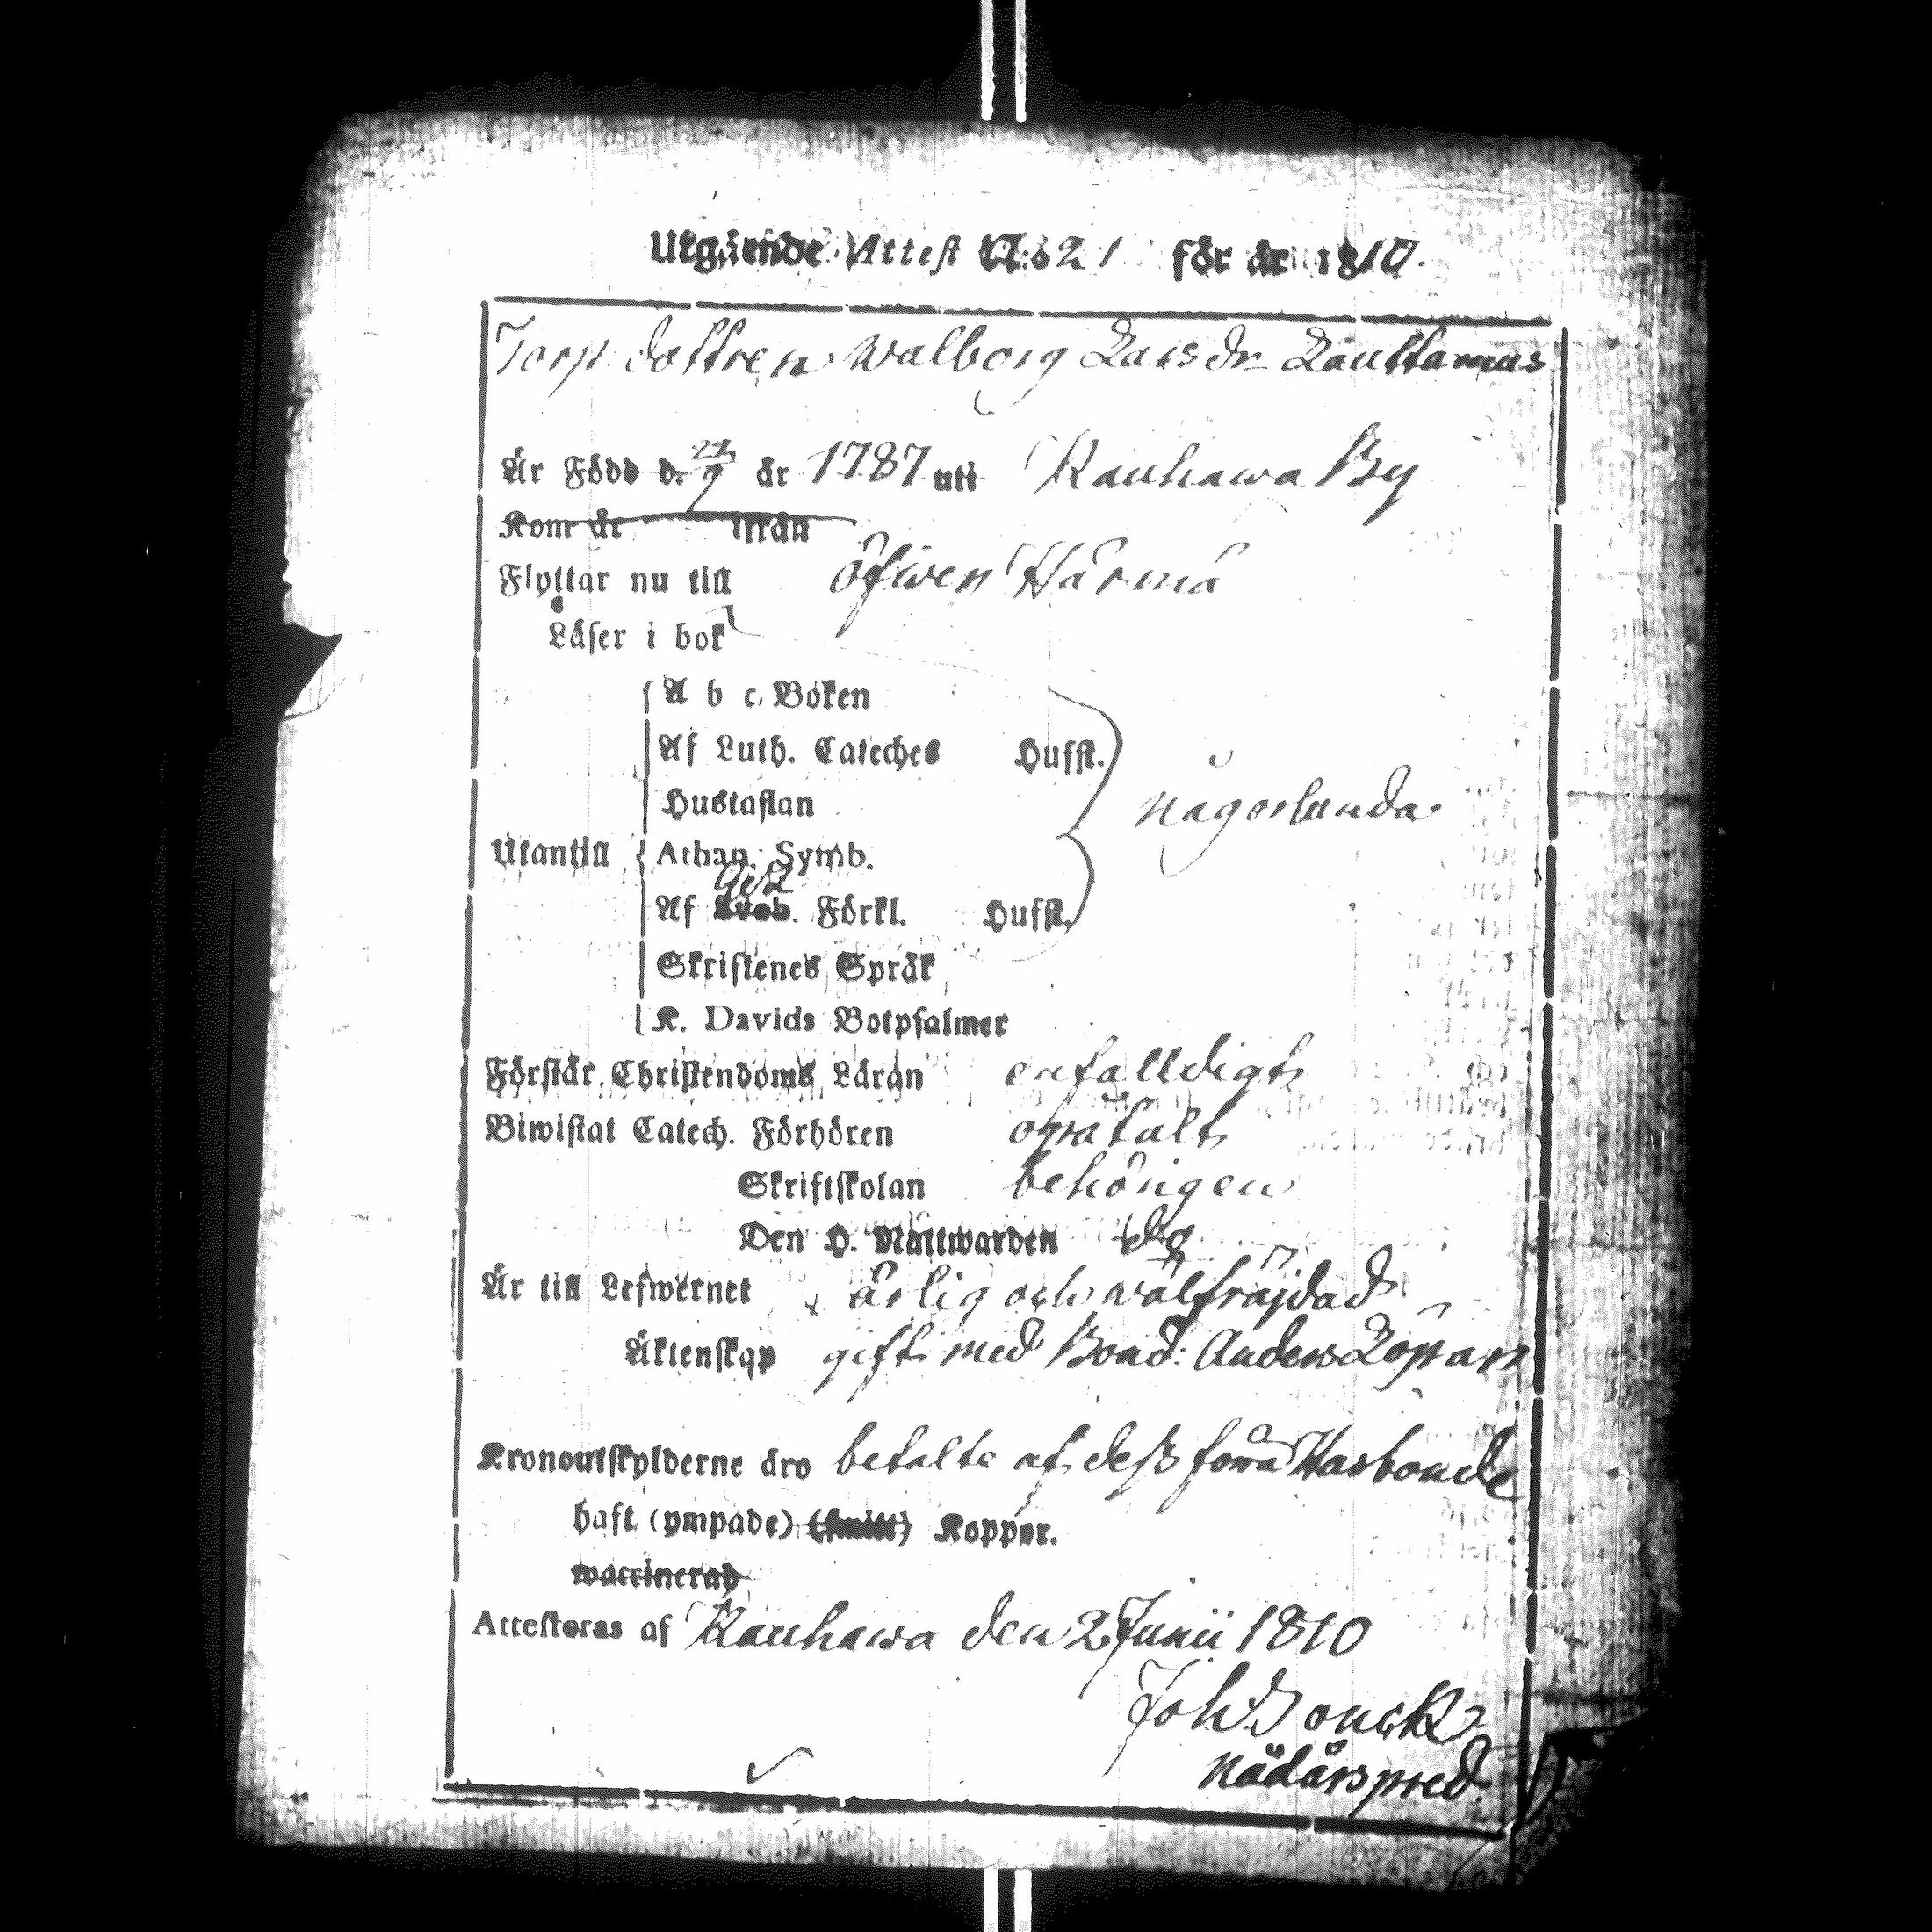 Utgående Attest N:o 21 för år 1810.
Torp. dottren Walborg Larsdr Lauttamus
Är Född d. 24/9 år 1787 uti Kauhawa By
Kom år ifrån
Flyttar nu till Öfwer Härmä
Läser i bok
A b c Boken
Af Luth. Cateches Hufst.
Hustaflan
någorlunda
Utantill
Athan. Symb.
Af Sveb. Förkl. Hufst.
Skriftenes Språk
K. Davids Botpsalmer
Förstår Christendoms Läran enfalldigt
Biwistat Catech. Förhören opåtalt
Skriftskolan behörigen
Den H. Nattwarden do
Är till Lefwernet ärlig och wälfräjdad
Äktenskap gift med Bond: Anders
Kronoutskylderne äro betalte af dess förra Husbonde
haft (ympade) (smitt) Koppor.
waccinerad
Attesteras af Kauhawa den 2 Junii 1810
Joh. Bonck
Nådårspred.